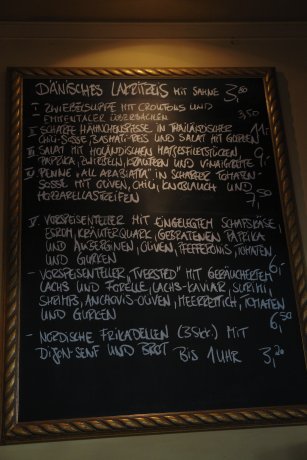 DÄNISCHES LAKRITZEIS MIT SAHNE 3,80
I ZWIEBELSUPPE MIT CROUTONS UND
EMMENTALER ÜBERBACKEN 3,50
II SCHARFE HÄHNCHENSPIESSE IN THAILÄNDISCHER
CHILI-SOSSE, BASMATI-REIS UND SALAT MIT GURKEN 11,-
III SALAT MIT HOLLÄNDISCHEN MATJESFILETSTÜCKEN
PAPRIKA, ZWIEBELN, KRÄUTERN UND VINAIGRETTE 9,-
IV PENNE "ALL ARABIATTA" IN SCHARFER TOMATEN-
SOSSE MIT OLIVEN, CHILI, KNOBLAUCH UND
MOZZARELLASTREIFEN 7,50
V. VORSPEISENTELLER MIT EINGELEGTEM SCHAFSKÄSE,
ESROM, KRÄUTERQUARK, GEBRATENEN PAPRIKA
UND AUBERGINEN, OLIVEN, PFEFFERONIS, TOMATEN
UND GURKEN 6,-
- VORSPEISENTELLER "TVERSTED" MIT GERÄUCHERTEM
LACHS UND FORELLE, LACHS-KAVIAR, SURIMI,
SHRIMPS, ANCHOVIS-OLIVEN, MEERRETTICH, TOMATEN
UND GURKEN 6,50
- NORDISCHE FRIKADELLEN (3 Stck.) MIT
DIJON-SENF UND BROT BIS 1 UHR 3,20